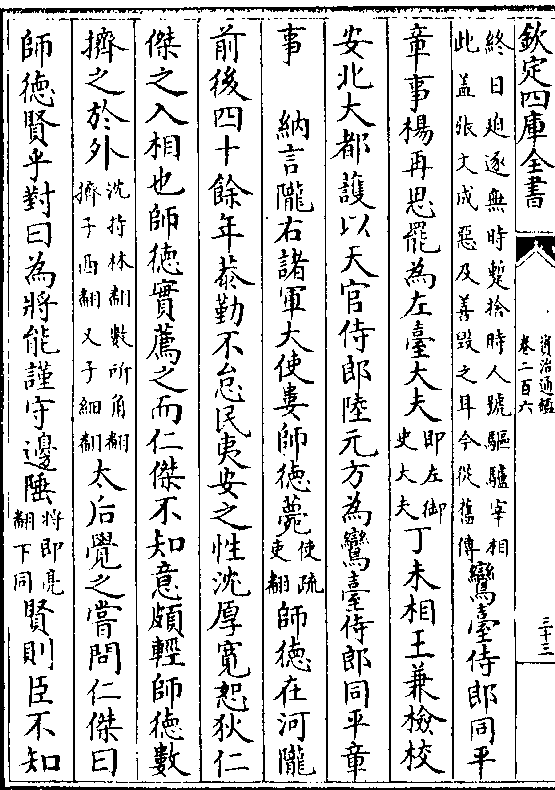 欽定四庫全書
資治通鑑
卷二百六
三十三
終日廹逐無時蹔捨時人號驅驢宰相
此蓋張文成惡及善毀之耳今從舊傳
鸞臺侍郎同平
章事楊再思罷為左臺大夫
即左御
史大夫
丁未相王兼檢校
安北大都護以天官侍郎陸元方為鸞臺侍郎同平章
事 納言隴右諸軍大使婁師德薨
使疏
吏翻
師德在河隴
前後四十餘年恭勤不怠民夷安之性沈厚寛恕狄仁
傑之入相也師德實薦之而仁傑不知意頗輕師德數
擠之於外
沈持林翻數所角翻
擠子西翻又子細翻
太后覺之嘗問仁傑曰
師德賢乎對曰為將能謹守邊陲
將即亮
翻下同
賢則臣不知